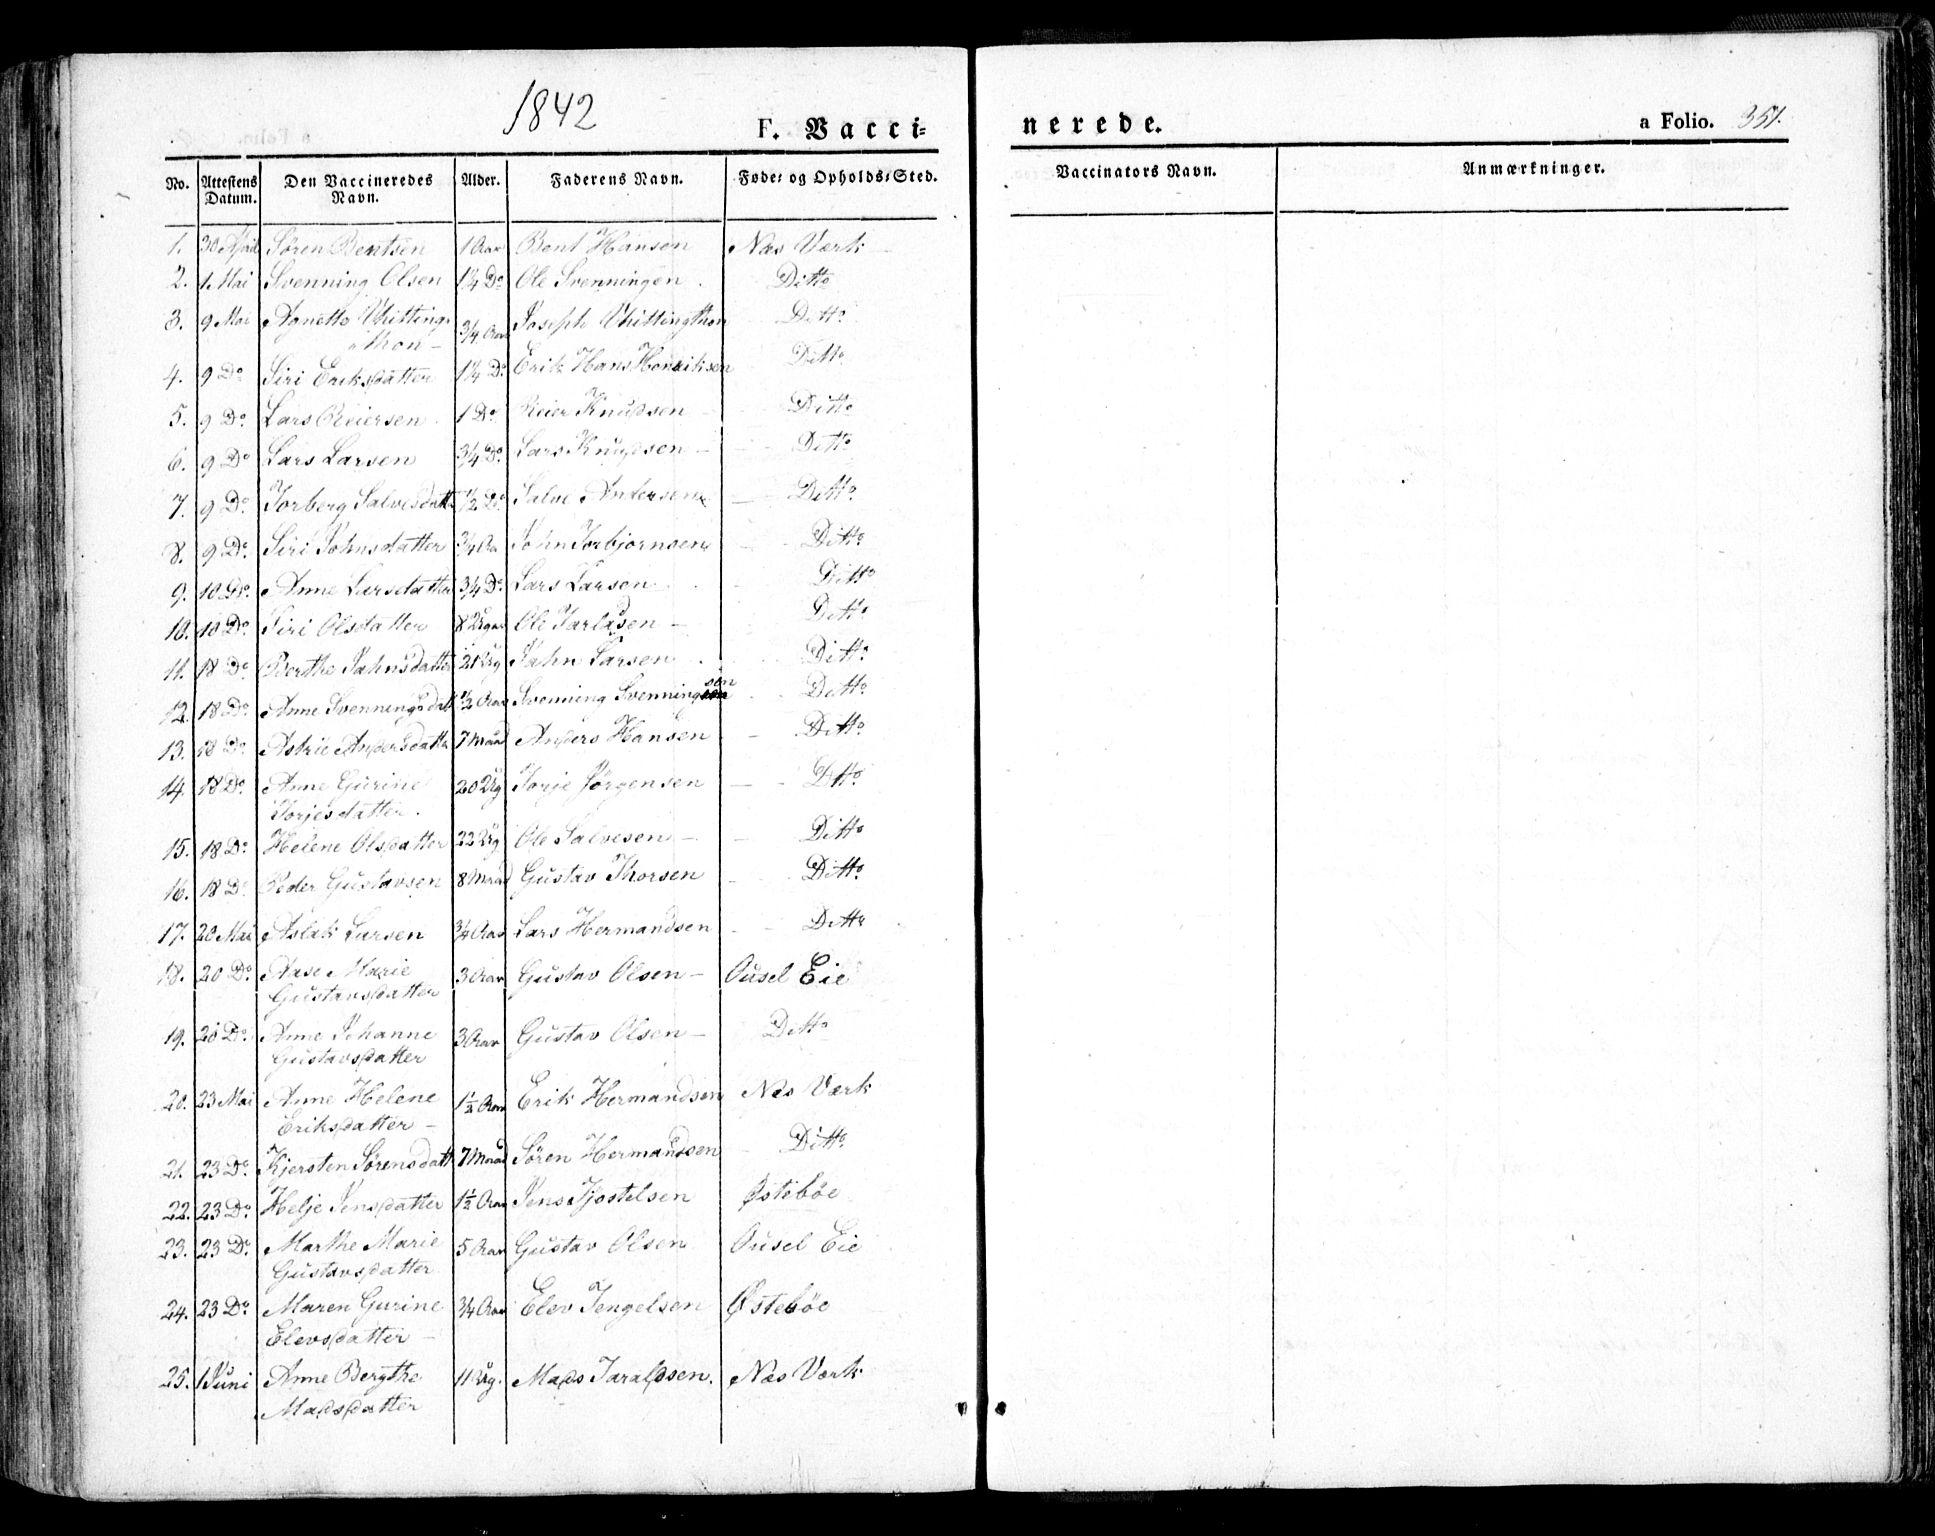 1842
F. Vacci-
nerede.
a Folio. 351.
No. Attestens Datum. Den Vaccineredes Navn. Alder. Faderens Navn. Føde- og Opholds-Sted. Vaccinators Navn. Anmærkninger.
1. 30 April Søren Bentsen 1 Aar Bent Hansen Næs Værk
2. 1 Mai Svenning Olsen 1¼ Do Ole Svenningen Ditto
3. 9 Mai Agnette Vhitting- ¾ Aar Joseph Vhittingthon Ditto
thon
4. 9 Do Siri Eriksdatter 1¼ Do Erik Hans Henriksen Ditto
5. 9 Do Lars Reiersen 1 Do Reier Knudsen Ditto
6. 9 Do Lars Larsen ¾ Do Lars Knudsen Ditto
7. 9 Do Torberg Salvesdatter ½ Do Salve Andersen Ditto
8. 9 Do Siri Johnsdatter ¾ Aar John Torbjornsen Ditto
9. 10 Do Anne Larsdatter ¾ Do Lars Larsen Ditto
10. 10 Do Siri Olsdatter 8 Ole Tarldsen Ditto
11. 18 Do Berthe Jahnsdatter 21 Ug Jahn Larsen Ditto
12. 18 Do Anne Svenningsdatt ½ Aar Svenning Svenningsen Ditto
13. 18 Do Astrie Andersdatter 7 Maad Anders Hansen Ditto
14. 18 Do Anne Gurine 20 Ug Torje Jörgensen Ditto
Torjesdatter.
15. 18 Do Helene Olsdatter 22 Ug Ole Salvesen Ditto
16. 18 Do Peder Gustavsen 8 Maad Gustav Thorsen Ditto
17. 20 Mai Aslak Larsen ¾ Aar Lars Hermandsen Ditto
18. 20 Do Aase Marie 3 Aar Gustav Olsen Ousel Eie
Gustavsdatter
19. 20 Do Anne Johanne 3 Aar Gustav Olsen Ditto
Gustavsdatter
20. 23 Mai Anne Helene 1½ Aar Erik Hermandsen Næs Værk
Eriksdatter
21. 23 Do Kjersten Sørensdatt 7 Maad Søren Hermandsen Ditto
22. 23 Do Helje Jensdatter 1½ Aar Jens Tjostelsen Østebøe
23. 23 Do Marthe Marie 5 Aar Gustav Olsen Ousel Eie
Gustavsdatter
24. 23 Do Maren Gurine ¾ Aar Elev Tengelsen Østebøe
Elevsdatter
25. 1 Juni Anne Bergthe 11 Ug. Mads Taraldsen. Næs Værk
Madsdatter